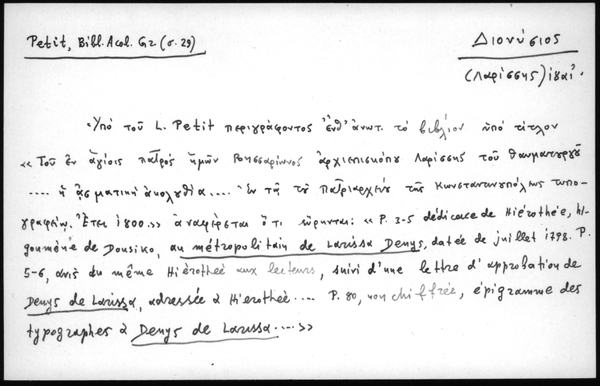 Petit, Bibl. Acol. Gr. (σ. 29)
Διονύσιος
(Λαρίσσης) ιθαί.
Ὑπό τοῦ L. Petit περιγράφοντος ἐνθ' ἀνωτ. τό βιβλίον ὑπό τίτλον
« Τοῦ ἐν ἁγίοις πατρός ἡμῶν Βησσαρίωνος ἀρχιεπισκόπου Λαρίσσης τοῦ θαυματουργοῦ
.... ἡ ᾀσματική ἀκολουθία.... Ἐν τῷ τοῦ Πατριαρχείου τῆς Κωνσταντινουπόλεως τυπο-
γραφείῳ. Ἔτει 1800.» ἀναφέρεται ὅτι εὕρηνται: « P. 3-5 dédicace de Hiérothée, hi-
gouméné de Dousiko, au métropolitain de Larissa Denys, datée de juillet 1798. P.
5-6, avis du même Hiérothée aux lecteurs, suivi d'une lettre d'approbation de
Denys de Larissa, adressée à Hierothée.... P. 80, non chiffrée, épigramme des
typographes à Denys de Larissa....»